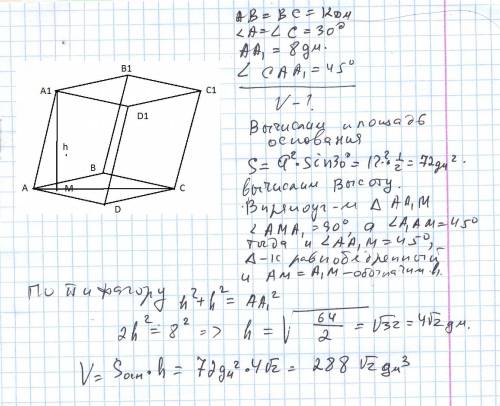 AB = BC = 12 дм
∠A = ∠C = 30°
AA₁ = 8 дм.
∠CAA₁ = 45°
V - ?
Вычислим площадь
основания
S = a²·Sin30° = 12²·½ = 72 дм².
вычислим высоту.
В прямоуг-м Δ AA₁M
∠AMA₁ = 90°, а ∠A₁AM = 45°
тогда и ∠AA₁M = 45°,
Δ-к равнобедренный
и AM = A₁M - обозначим h.
B1
A1
C1
D1
h
B
A
M
C
D
По пифагору h² + h² = AA₁²
2h² = 8² => h = √64/2 = √32 = 4√2 дм.
V = Sосн·h = 72 дм²·4√2 = 288 √2 дм³